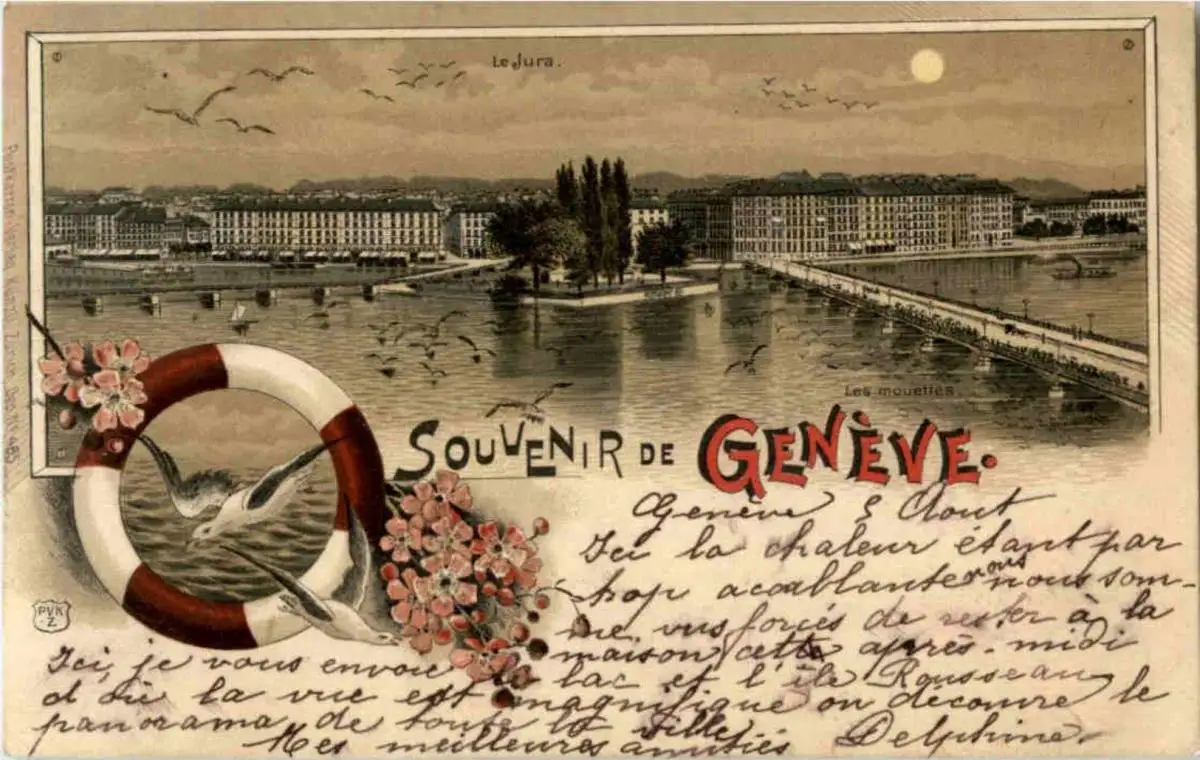 Le Jura.
Les mouettes.
SOUVENIR DE GENÈVE.
Genève 8 Aout
Ici la chaleur étant par
trop accablante nous nous som-
me vus forcés de rester à la
maison cette après-midi
Ici, je vous envoie lac et l'île Rousseau
d'où la vue est magnifique on découvre le
panorama de toute la ville
Mes meilleures amitiés Delphine.
PVK
Z